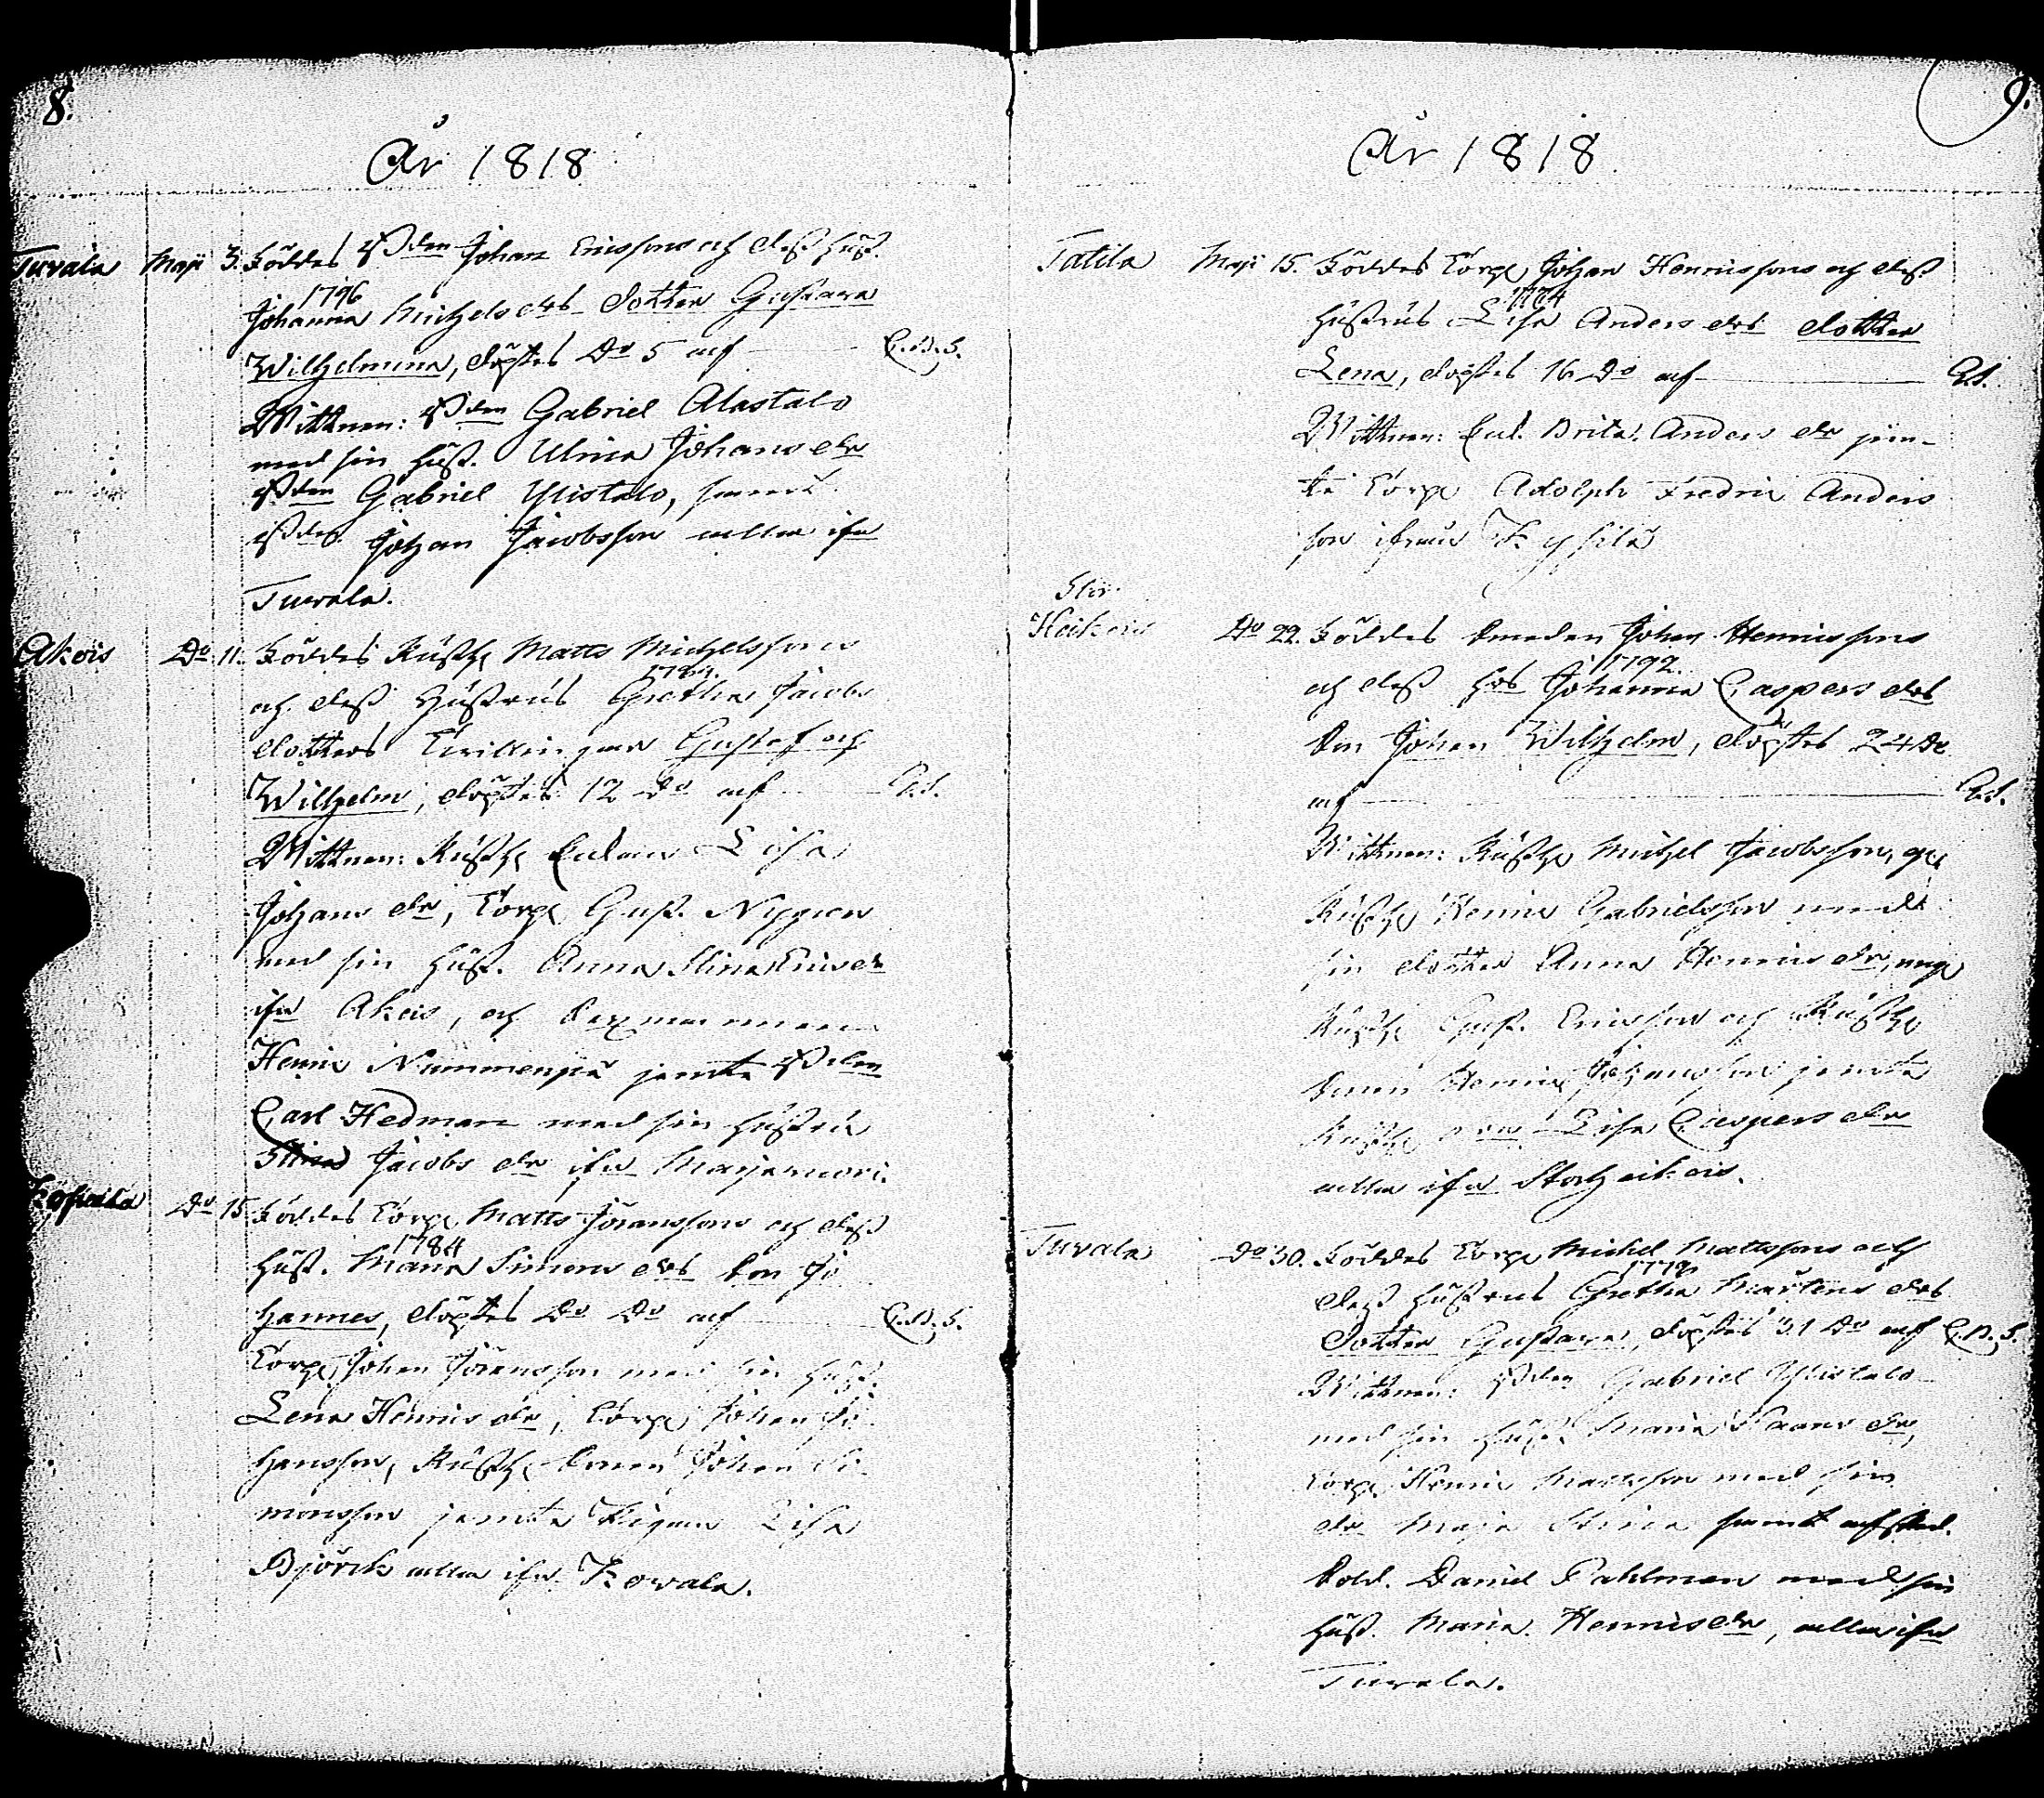 8.
År 1818
Tuvala Maji 3. Föddes Bden Johan Ericssons och dess hust.
1796
Johanna Michelsdrs dotter Gustava
Wilhelmina, döptes Do 5 af C.N.S.
Wittnen: Bden Gabriel Alastalo
med sin hust. Ulrica Johansdr
Bden Gabriel Ylistalo, samt
Bden Johan Jacobsson alla ifn
Tuvala.
Akois Do 11. Föddes Rusth. Matts Michelssons
och dess hustrus Gretha Jacobs
dotters Tvillingar Gustaf och
Wilhelm, döptes 12 Do af
Wittnen: Rusth. Enkan Lisa
Johansdr, Torp. Gust. Nygren
med sin hust. Anna Stina Ericsdr
ifn Akois, och
Henric Nummenpä jemte Bden
Carl Hedman med sin hustru
Stina Jacobsdr ifn Marjamäki.
Do 15 Föddes Torp. Matts Jöranssons och dess
1784
hust. Maria Simonsdrs Son Jo
hannes, döptes Do Do af C.N.S.
Torp. Johan Jöransson med sin hust.
Lena Henricsdr, Torp. Johan Jo
hansson, Rusth. Sonen Johan Si
monsson jemte Pigan Lisa
Björck alla ifn Kovala.
9.
År 1818
Tatila Maji 15. Föddes Torp. Johan Henricssons och dess
hustrus Lisa Andersdrs dotter
Lena, döptes 16 Do af
Wittnen: Enk. Brita Andersdr jem-
te Torp. Adolph Fredric Anders
son ifrån Kysilä
Stor
Heikois Do 22. Föddes Smeden Johan Henricssons
1792
och dess hos Johanna Caspersdrs
Son Johan Wilhelm, döptes 24 Do
af
Wittnen: Rusth. Michel Jacobsson, g.
Rusth. Henric Gabrielsson med
sin dotter Anna Henricsdr, unga
Rusth. Gust. Ericsson och Rusth.
Sonen Henric Johansson jemte
Rusth. Lisa Caspersdr
alla ifn Storheikois.
Tuvala Do 30. Föddes Torp. Michel Mattssons och
dess hustrus Gretha Mårtensdrs
Dotter Gustava, döptes 31 Do af C.N.S.
Wittnen: Bden Gabriel Ylistalo
med sin hust. Maria
Torp. Henric Mattsson med sin
dr Maja Stina samt afsked.
Sold. Daniel Pahlman med sin
hust. Maria Henricsdr, alla ifn
Tuvala.